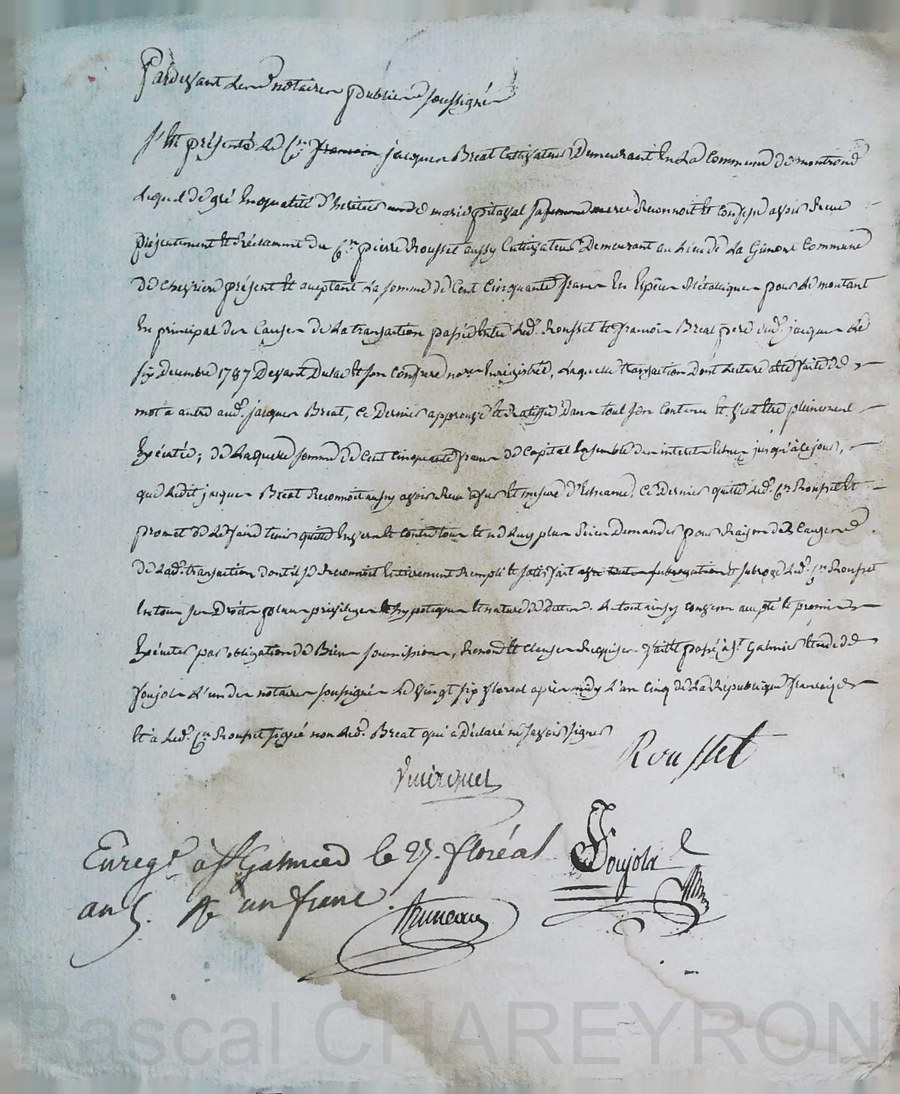 Pardevant les notaires publics soussignés
S'est présenté le Cen francois jacques Breat Cultivateur Demeurant en La Commune de montrond
Lequel de gré En qualité d'héritier de marie pitaval sa mere Reconnoit et confesse avoir Receu
présentement et Réellement du Cen pierre Rousset aussy Cultivateur Demeurant au Lieu de La Gimont Commune
de Chevrieres présent et aceptant La somme de Cent Cinquante francs En Espèces Métalliques pour le montant
En principal des Causes de La transaction passée entre Led. Rousset et francois Breat pere dud. jacques Le
six decembre 1787 Devant Dulac et son Confrere nores Enregistrée, Laquelle transaction dont Lecture a été faite de
mot à autre aud. jacques Breat, Ce Dernier approuve et Ratiffie Dans tout son Contenu et veut être pleinement
Exécutée ; de Laquelle somme de Cent Cinquante francs de Capital Ensemble des interets jusqu'à ce jour,
que Ledit jacques Breat Reconnoit aussy avoir Receu Ce Dernier quitte Led. Cen Rousset et
promet de Le faire tenir quitte Envers et Contre tous et ne Luy plus Rien Demander pour Raison des Causes
de Lad. transaction dont il se Reconnoit Entierement Rempli et satisfait et subroge Led. Cen Rousset
En tous ses Droits privileges et hypoteques et nature de dettes. Le tout ainsy Convenu accepté et promis
Exécuter par obligation de Biens soumissions, Renonc. et Clauses Requises. fait et passé à St Galmier Etude de
Soujola L'un des notaires soussignés Le vingt six floreal après midy L'an Cinq de La Republique francaise
et à Led. Cen Rousset signé non Led. Breat qui a Déclaré ne savoir signer
Rousset
Soujola
Enregé à St Galmier le 27. floréal
an 5. un franc.
Bruneau
Pascal CHAREYRON